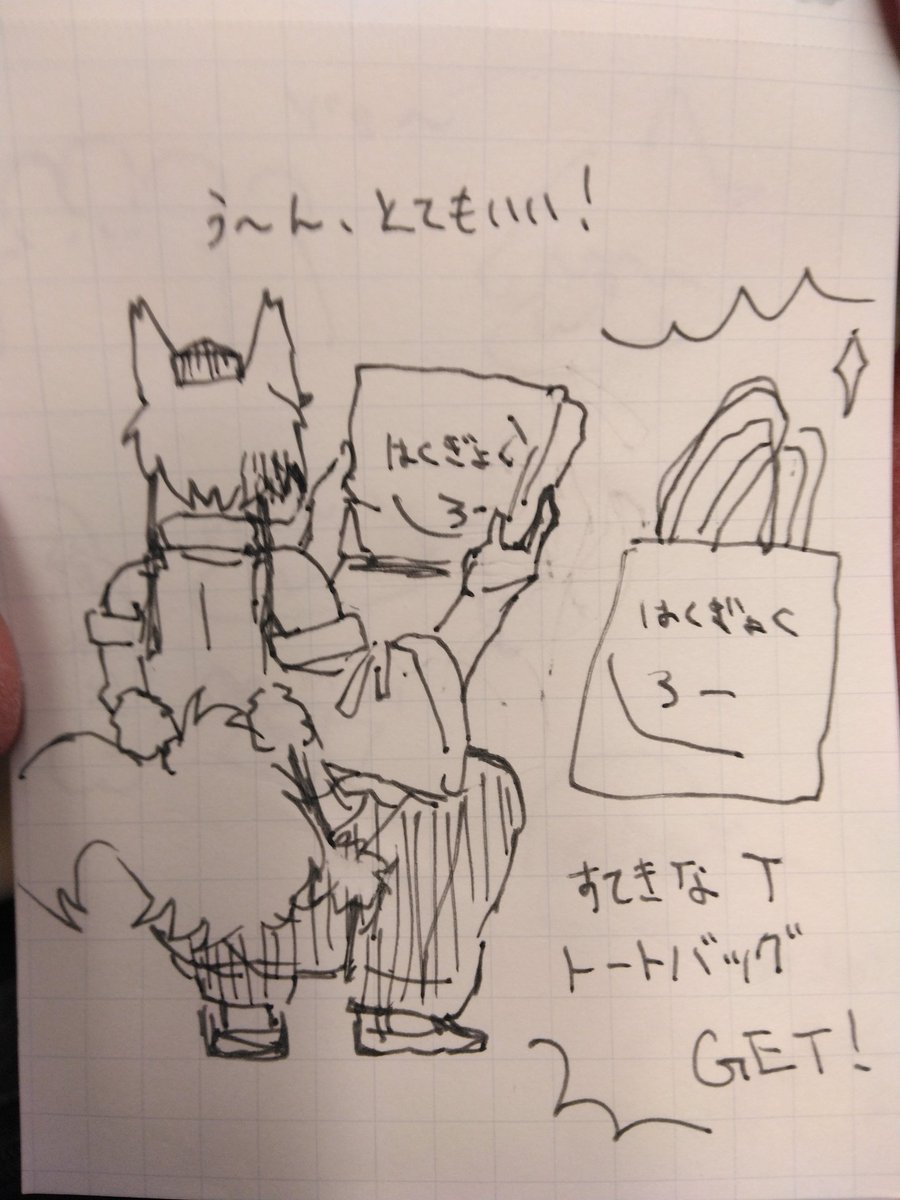 う～ん、とてもいい！
はくぎょく
ろー
はくぎょく
ろー
すてきなT
トートバッグ
GET！